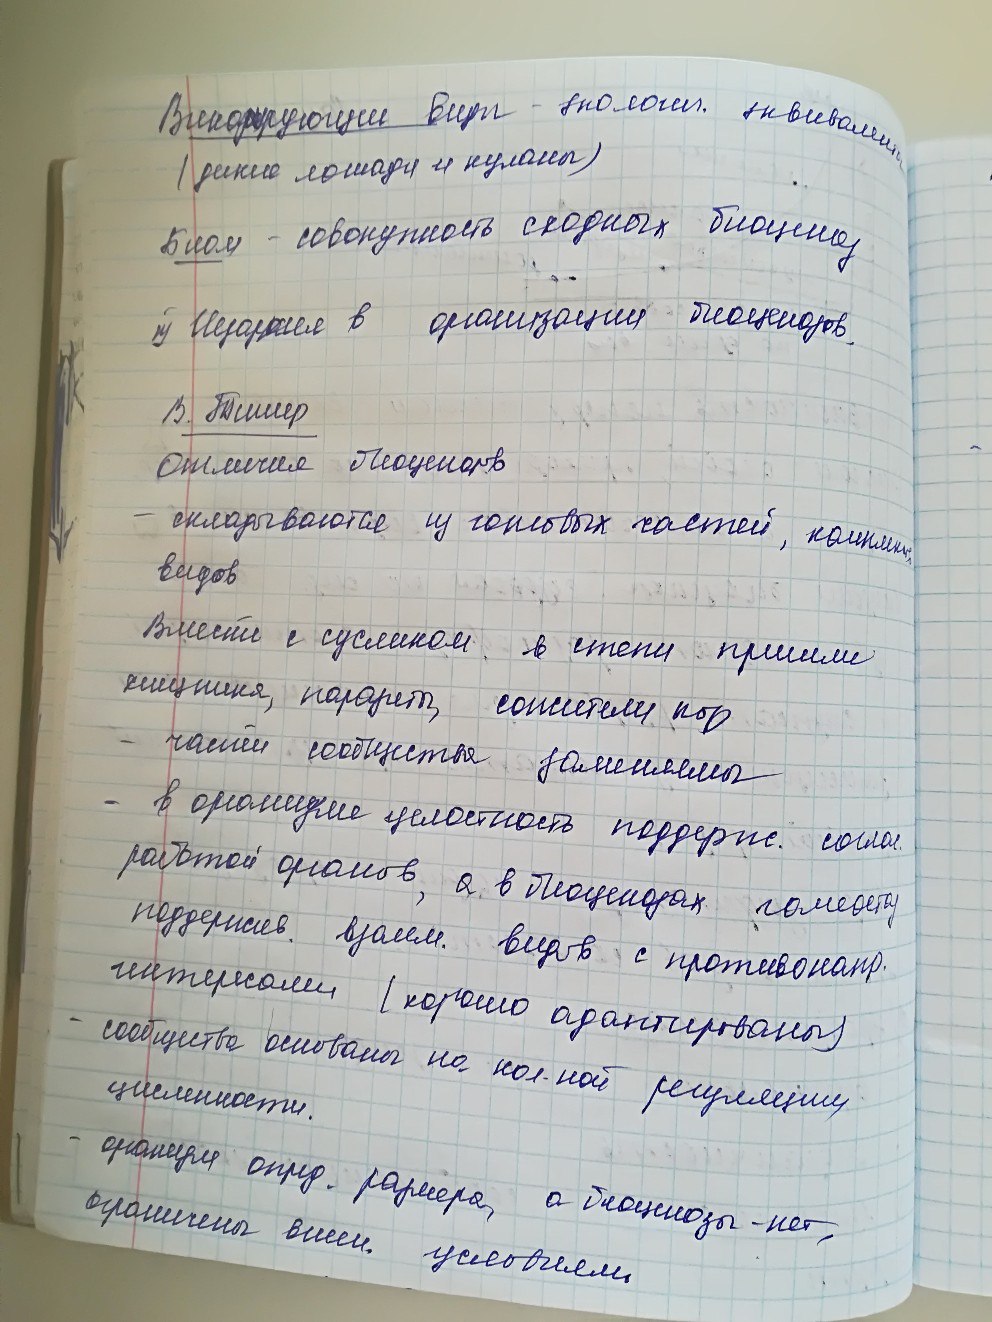 Викарирующие виды - экологи. эквиваленты
(дикие лошади и куланы)
Биом - совокупность сходных биоценоз
в организации биоценозов.
В. Тишлер
Отличия биоценозов
- складываются из готовых частей,
видов
Вместе с сусликом в степи пришли
хищники, паразиты, сожители нор
- части сообщества заменяемы
- в организме целостность поддерж. соглас.
работой органов, а в биоценозах гомеостаз
поддержив. взаим. видов с противонапр.
интересами (хорошо адаптированы)
- сообщества основаны на кол-ной регуляции
численности.
- организм опред. размера, а биоценозы - нет,
ограничены внеш. условиями